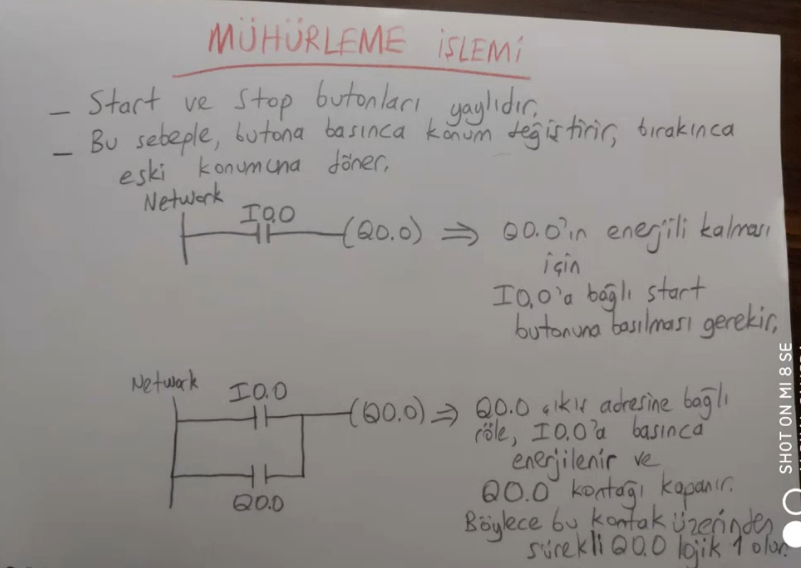 MÜHÜRLEME İŞLEMİ
– Start ve stop butonları yaylıdır.
– Bu sebeple, butona basınca konum değiştirir, bırakınca
eski konumuna döner.
Network
I0.0
(Q0.0) ⇒ Q0.0'ın enerjili kalması
için
I0.0'a bağlı start
butonuna basılması gerekir.
Network
I0.0
(Q0.0) ⇒ Q0.0 çıkış adresine bağlı
röle, I0.0'a basınca
enerjilenir ve
Q0.0 kontağı kapanır.
Q0.0
Böylece bu kontak üzerinden
sürekli Q0.0 lojik 1 olur.
SHOT ON MI 8 SE